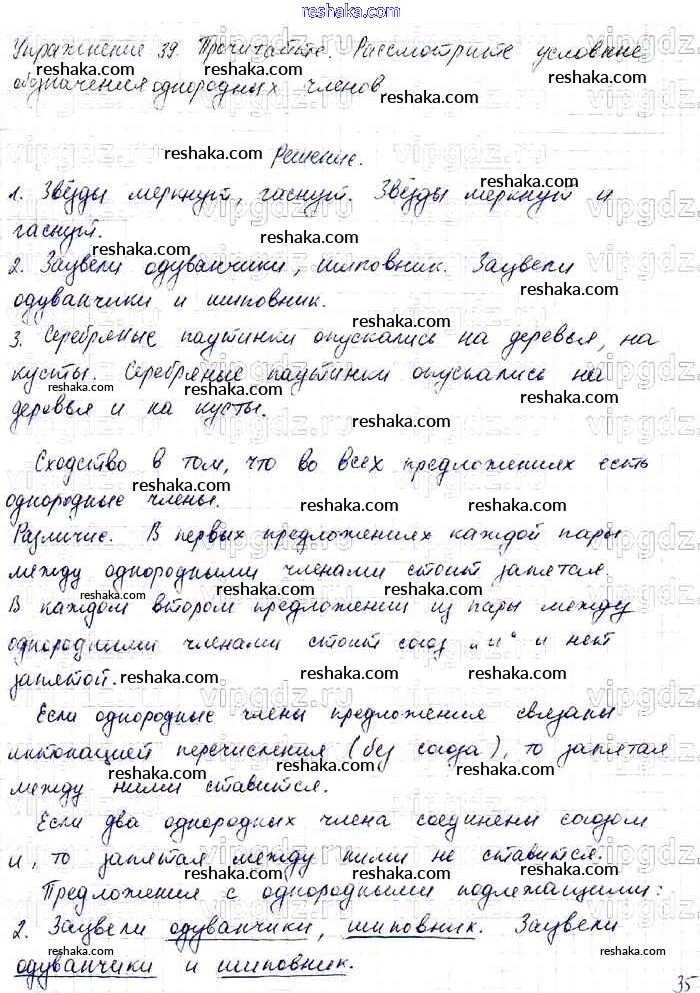 reshaka.com
Упражнение 39. Прочитайте. Рассмотрите условные
обозначения однородных членов
Решение.
1. Звёзды меркнут, гаснут. Звёзды меркнут и
гаснут.
2. Зацвели одуванчики, шиповник. Зацвели
одуванчики и шиповник.
3. Серебряные паутинки опускались на деревья, на
кусты. Серебряные паутинки опускались на
деревья и на кусты.
Сходство в том, что во всех предложениях есть
однородные члены.
Различие. В первых предложениях каждой пары
между однородными членами стоит запятая.
В каждом втором предложении из пары между
однородными членами стоит союз „и“ и нет
запятой.
Если однородные члены предложения связаны
интонацией перечисления (без союза), то запятая
между ними ставится.
Если два однородных члена соединены союзом
и, то запятая между ними не ставится.
Предложения с однородными подлежащими:
2. Зацвели одуванчики, шиповник. Зацвели
одуванчики и шиповник.
35